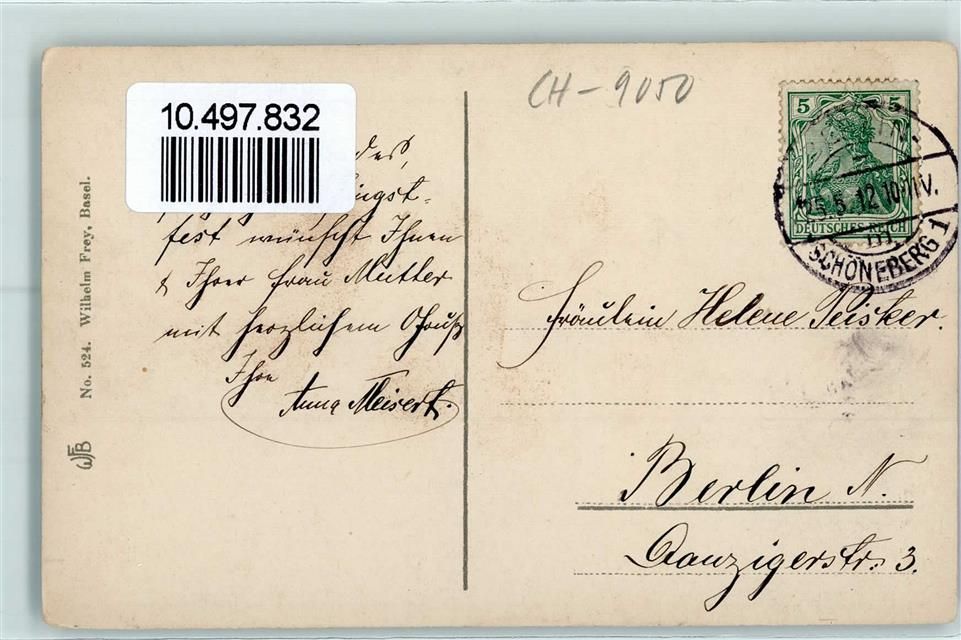 CH-9050
10.497.832
5 5
DEUTSCHES REICH
SCHÖNEBERG 1
25.5.12.10-11V.
fest wünscht Ihnen
& Ihrer Frau Mutter
mit herzlichem Gruß
Ihre
Anna Meisert.
Fräulein Helene Peisker.
Berlin N.
Danzigerstr. 3.
No. 524. Wilhelm Frey, Basel.
WFB